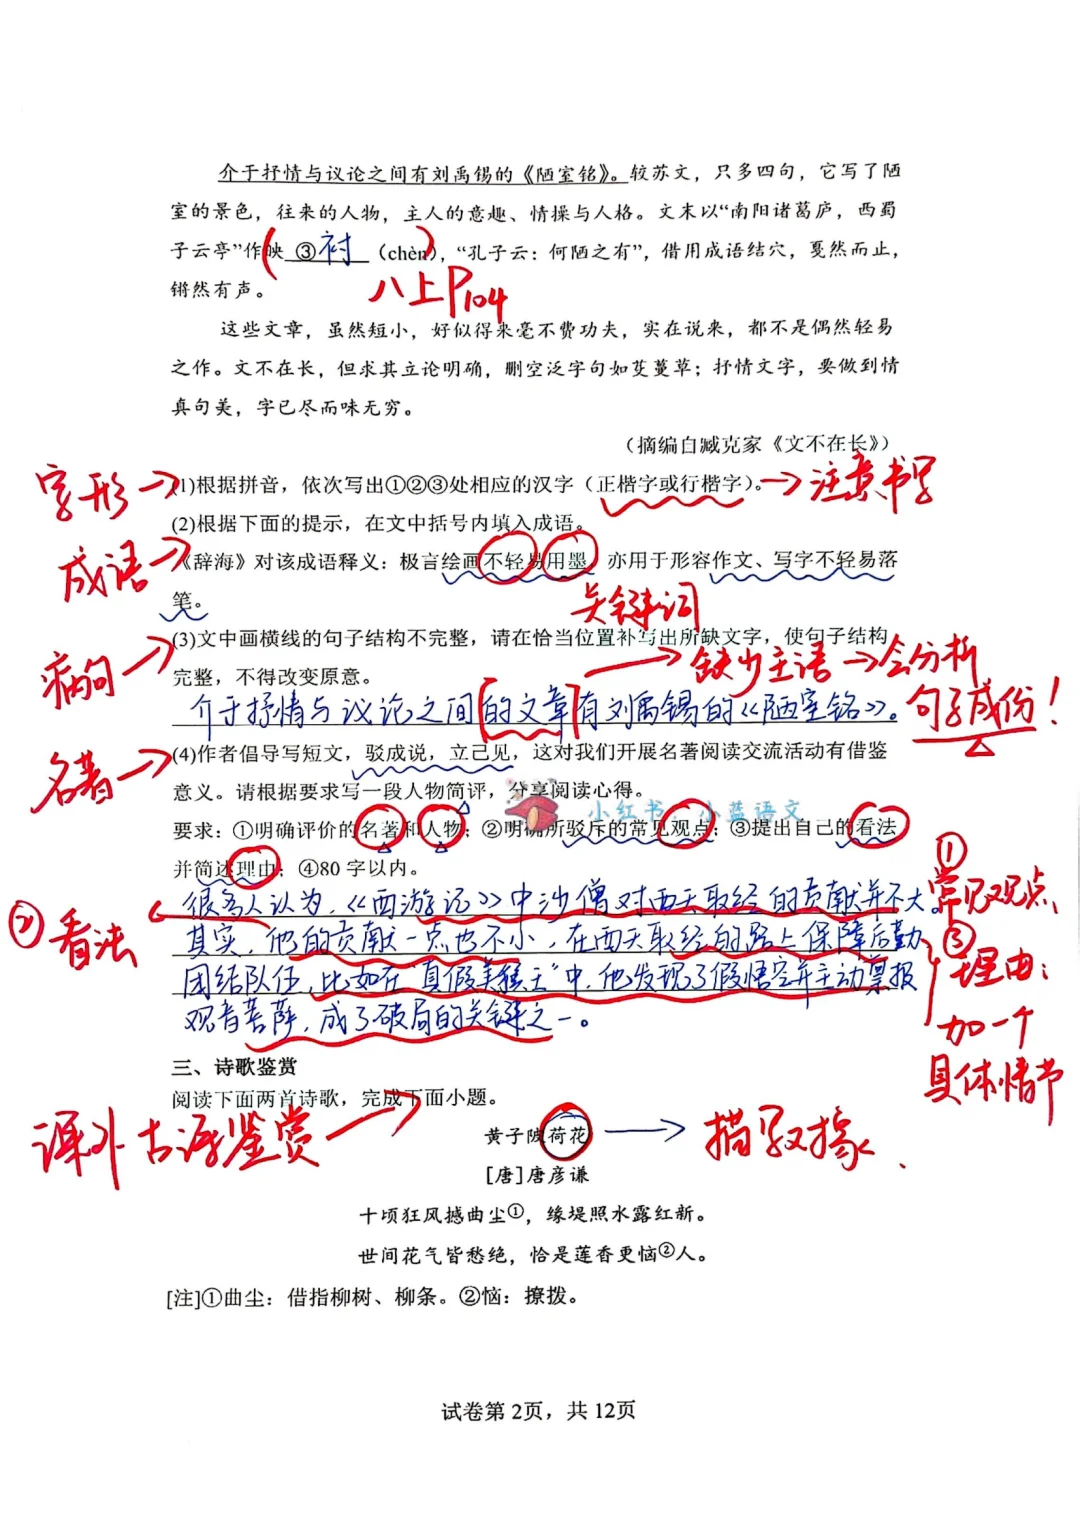 介于抒情与议论之间有刘禹锡的《陋室铭》。较苏文，只多四句，它写了陋
室的景色，往来的人物，主人的意趣、情操与人格。文末以“南阳诸葛庐，西蜀
子云亭”作(映 ③衬 （chèn）)，“孔子云：何陋之有”，借用成语结穴，戛然而止，
锵然有声。
八上P104
这些文章，虽然短小，好似得来毫不费功夫，实在说来，都不是偶然轻易
之作。文不在长，但求其立论明确，删空泛字句如芟蔓草；抒情文字，要做到情
真句美，字已尽而味无穷。
（摘编自臧克家《文不在长》）
字形
(1)根据拼音，依次写出①②③处相应的汉字（正楷字或行楷字）。
注意书写
(2)根据下面的提示，在文中括号内填入成语。
成语
《辞海》对该成语释义：极言绘画不轻易用墨，亦用于形容作文、写字不轻易落
笔。
关键词
(3)文中画横线的句子结构不完整，请在恰当位置补写出所缺文字，使句子结构
完整，不得改变原意。
病句
缺少主语→会分析
句子成份！
介于抒情与议论之间[的文章]有刘禹锡的《陋室铭》。
名著
(4)作者倡导写短文，驳成说，立己见，这对我们开展名著阅读交流活动有借鉴
意义。请根据要求写一段人物简评，分享阅读心得。
小红书：小蓝语文
要求：①明确评价的名著和人物；②明确所驳斥的常见观点；③提出自己的看法
并简述理由；④80 字以内。
很多人认为，《西游记》中沙僧对西天取经的贡献并不大。
其实，他的贡献一点也不小，在西天取经的路上保障后勤、
团结队伍，比如在“真假美猴王”中，他发现了假悟空并主动禀报
观音菩萨，成了破局的关键之一。
①
常见观点
② 看法
③
理由：
加一个
具体情节
三、诗歌鉴赏
阅读下面两首诗歌，完成下面小题。
课外古诗鉴赏
黄子陂荷花
描写对象
[唐]唐彦谦
十顷狂风撼曲尘①，缘堤照水露红新。
世间花气皆愁绝，恰是莲香更恼②人。
[注]①曲尘：借指柳树、柳条。②恼：撩拨。
试卷第 2页，共 12页